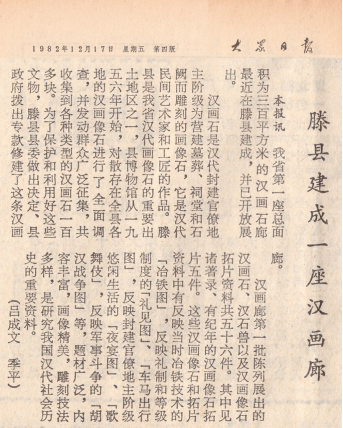 1982年12月17日 星期五 第四版
大众日报
滕县建成一座汉画廊
本报讯 我省第一座总面
积为三百平方米的汉画石廊
最近在滕县建成，并已开放展
出。
汉画石是汉代封建官僚地
主阶级为营建墓葬、祠堂和石
阙而雕刻的画像石，它是汉代
民间艺术家和工匠的作品。滕
县是我省汉代画像石的重要出
土地区之一，县博物馆从一九
五六年开始，对散存在全县各
地的汉画像石进行了全面调
查，并发动群众广泛征集，共
收集到各种类型的汉画石一百
多块。为保护和利用好这些
文物，滕县县委做出决定、县
政府拨出专款修建了这条汉画
廊。
汉画廊第一批陈列展出的
汉画石、汉石兽以及汉画像石
拓片资料共五十六件。其中见
诸著录、有纪年的汉画像石拓
片五件。这些汉画像石和拓片
资料中有反映当时冶铁技术的
「冶铁图」，反映礼制和等级
制度的「礼见图」、「车马出行
图」，反映封建官僚地主阶级
悠闲生活的「夜宴图」、「歌
舞伎」，反映军事斗争的「胡
汉战争图」等，题材广泛，内
容丰富，画像精美，雕刻技法
多样，是研究我国汉代社会历
史的重要资料。
（吕成文 季平）